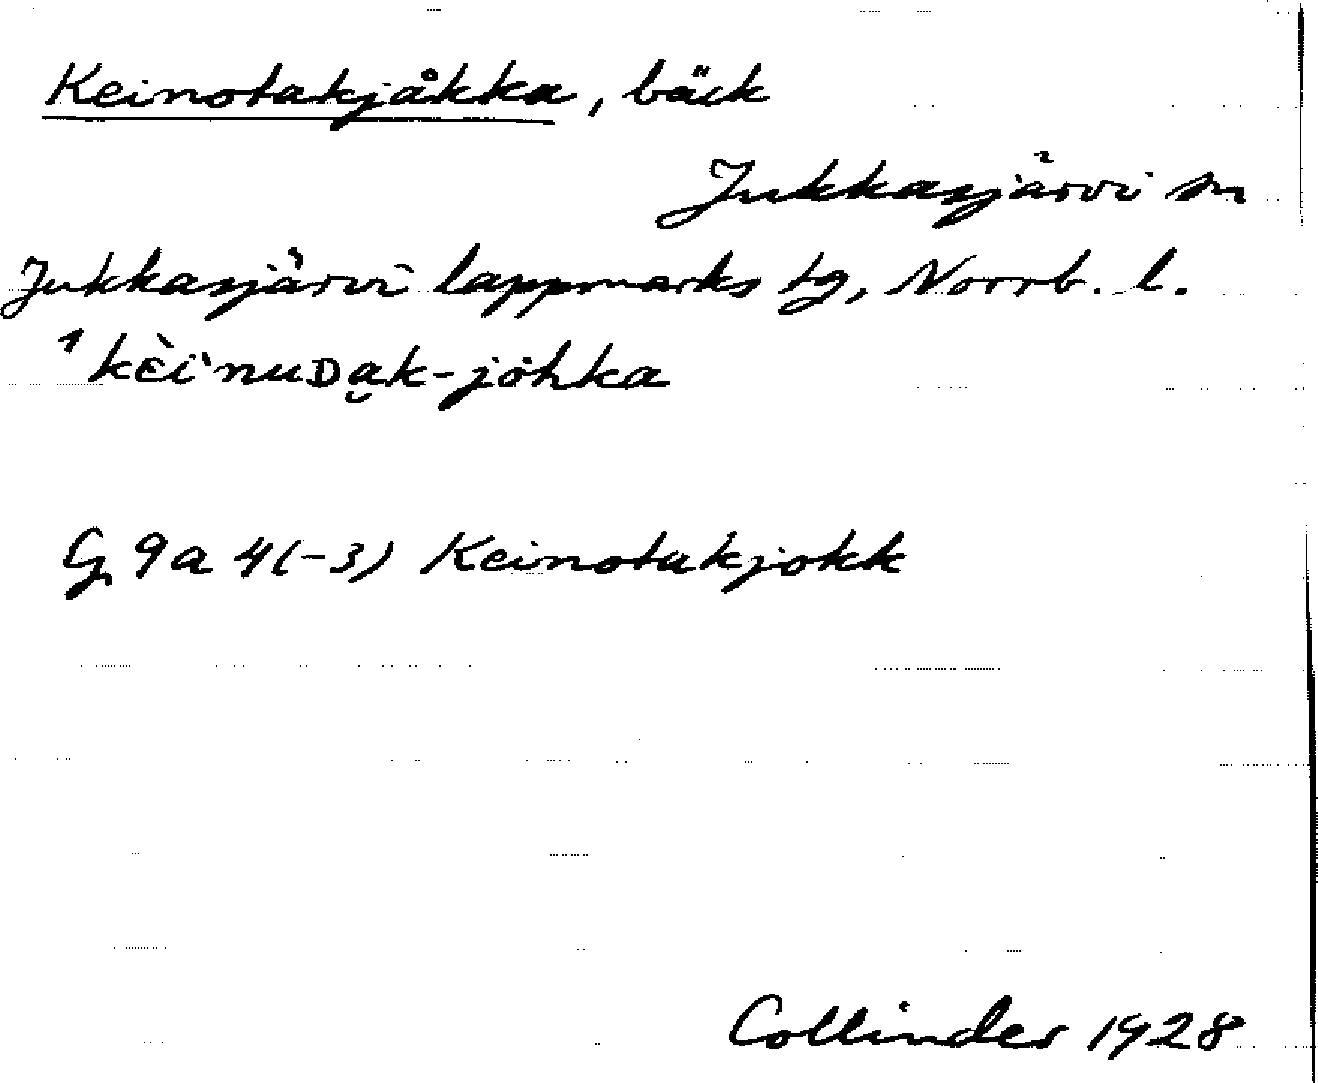 Keinotakjåkka, bäck
Jukkasjärvi sn
Jukkasjärvi lappmarks tg, Norrb. l.
ˈkὲi`nuᴅa̮k-jåhka
G 9a 4(-3) Keinotakjokk
Collinder 1928